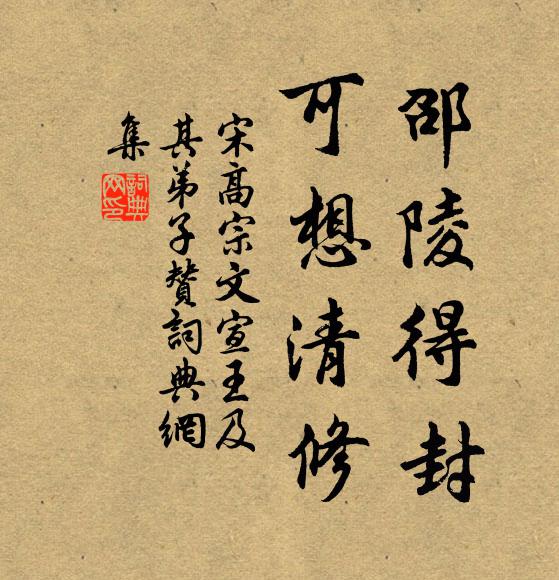 邵陵得封
可想清修
宋高宗文宣王及
其弟子賛詞典網
集
詞典網印